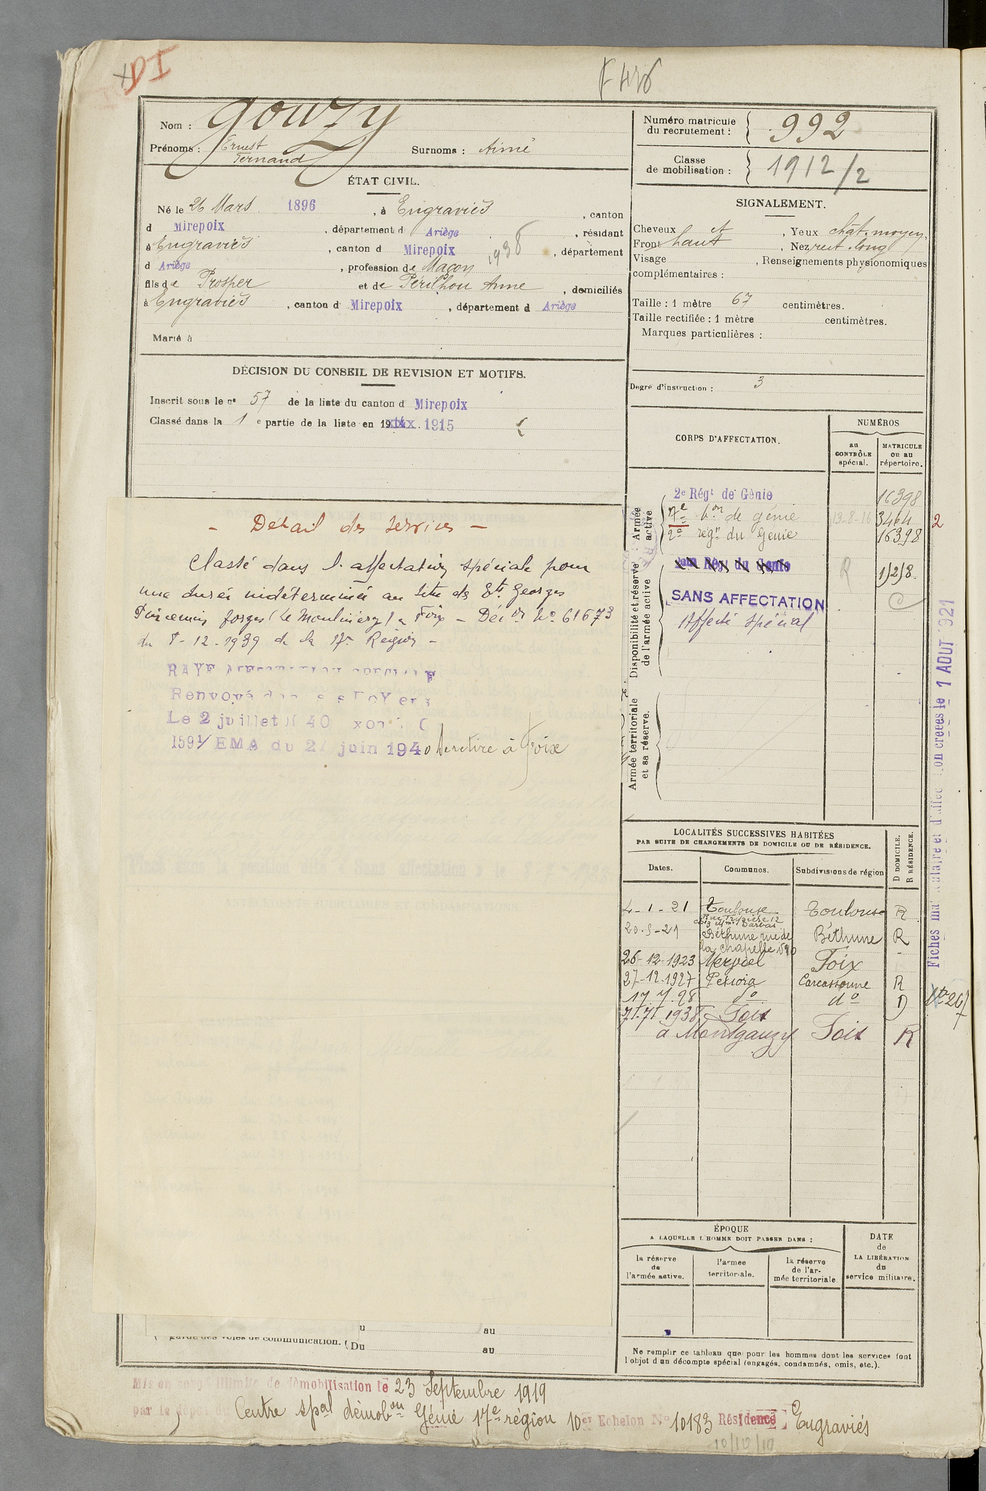 Nom : Gouzy
Prénoms : Ernest Fernand Surnoms : Aimé
ÉTAT CIVIL.
Né le 26 Mars 1896, à Engraviès, canton
d Mirepoix, département d Ariège, résidant
à Engraviès, canton d Mirepoix, département
d Ariège, profession de Maçon 1938
fils de Prosper et de Périlhou Anne, domiciliés
à Engraviès, canton d Mirepoix, département d Ariège
Marié à
DÉCISION DU CONSEIL DE REVISION ET MOTIFS.
Inscrit sous le nº 57 de la liste du canton d Mirepoix
Classé dans la 1 e partie de la liste en 19 1915
— Détail des Services —
Classé dans l'affectation spéciale pour
une durée indéterminée au titre des Ets Georges
forges (Le Moulinéry) à Foix — Déc on Nº 61673
du 8-12-1939 de la 17e Région —
RAYÉ AFFECTATION SPECIALE
Renvoyé dans ses foyers
Le 2 juillet 1940
1591/EMA du 27 juin 1940 Se retire à Foix
au
guide des voies de communication. (Du au
Mis en congé illimité de démobilisation le 23 Septembre 1919
par le dépôt du Centre spal démob on Génie 17e région 10er Echelon Nº 10183 Résidence Engraviès
Numéro matricule
du recrutement : 992
Classe
de mobilisation : 1912/2
SIGNALEMENT.
Cheveux et, Yeux chat. moyen,
Front haut, Nez rect. long
Visage, Renseignements physionomiques
complémentaires :
Taille : 1 mètre 67 centimètres.
Taille rectifiée : 1 mètre centimètres.
Marques particulières :
Degré d'instruction : 3
CORPS D'AFFECTATION.
NUMÉROS
au CONTRÔLE spécial.
MATRICULE OU AU répertoire.
Armée active
2e Régt de Génie 16398
7e bon de génie 3464
2e régt du Génie 16398
2
Disponibilité et réserve de l'armée active
Régt du Génie
SANS AFFECTATION
Affecté spécial
Armée territoriale et sa réserve.
LOCALITÉS SUCCESSIVES HABITÉES
PAR SUITE DE CHANGEMENTS DE DOMICILE OU DE RÉSIDENCE.
Dates. Communes. Subdivisions de région D DOMICILE. R RÉSIDENCE.
4-1-21 Toulouse Toulouse R
20-5-21 Béthune rue de la chapelle Béthune R
26-12-1923 Merviel Foix
27-12-1927 Pexiora Carcassonne R
17-7-28 dº dº D
1938 Foix
à Montgauzy Foix R
ÉPOQUE
A LAQUELLE L'HOMME DOIT PASSER DANS :
DATE de LA LIBÉRATION du service militaire.
la réserve de l'armée active.
l'armée territoriale.
la réserve de l'armée territoriale.
Ne remplir ce tableau que pour les hommes dont les services font
l'objet d'un décompte spécial (engagés, condamnés, omis, etc.).
Fiches matriculaire et d'affectation créées le 1 AOUT 1921